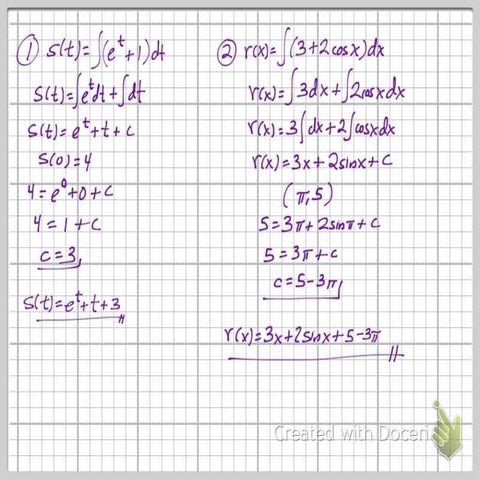 ① s(t)=∫(e^t+1)dt
s(t)=∫e^t dt+∫dt
s(t)=e^t+t+c
s(0)=4
4=e^0+0+c
4=1+c
c=3
s(t)=e^t+t+3
② r(x)=∫(3+2cosx)dx
r(x)=∫3dx+∫2cosxdx
r(x)=3∫dx+2∫cosxdx
r(x)=3x+2sinx+c
(π,5)
5=3π+2sinπ+c
5=3π+c
c=5-3π
r(x)=3x+2sinx+5-3π
Created with Doceri